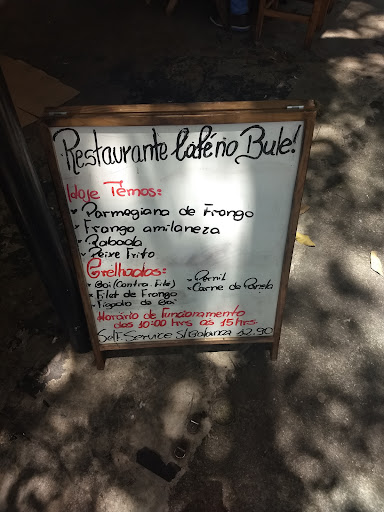 Restaurante Café no Bule!
Hoje Temos:
Parmegiana de Frango
Frango amilaneza
Rabada
Peixe Frito
Grelhados:
Boi (Contra. Filé)
Pernil
Filet de Frango
Carne de Panela
Figado de Boi
Horário de Funcionamento
das 10:00 hrs às 15 hrs
Self. Service S/ Balanza 12,90